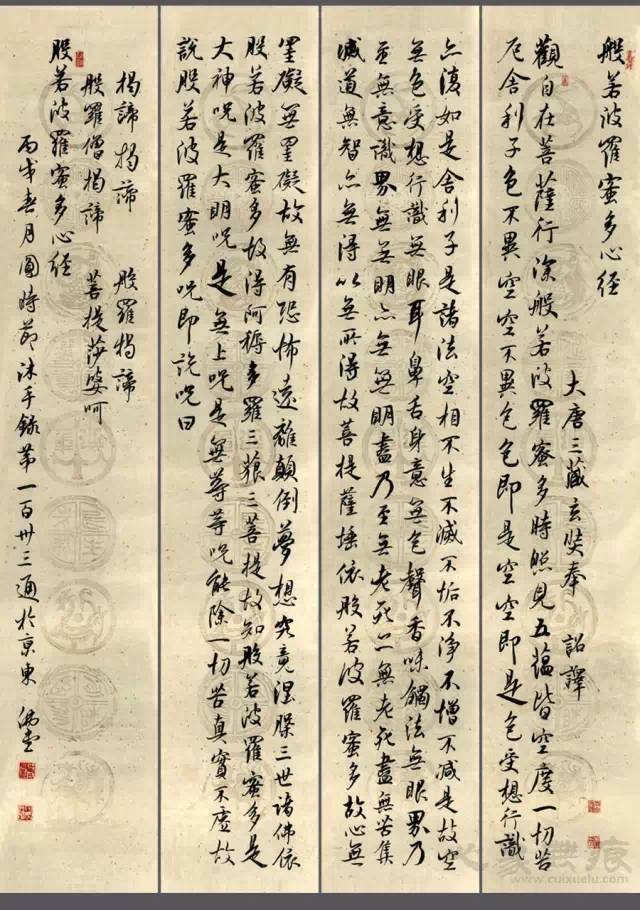 般若波羅蜜多心經
大唐三藏玄奘奉 詔譯
觀自在菩薩行深般若波羅蜜多時照見五蘊皆空度一切苦
厄舍利子色不異空空不異色色即是空空即是色受想行識
亦復如是舍利子是諸法空相不生不滅不垢不淨不增不減是故空
無色受想行識無眼耳鼻舌身意無色聲香味觸法無眼界乃
至無意識界無無明亦無無明盡乃至無老死亦無老死盡無苦集
滅道無智亦無得以無所得故菩提薩埵依般若波羅蜜多故心無
罣礙無罣礙故無有恐怖遠離顛倒夢想究竟涅槃三世諸佛依
般若波羅蜜多故得阿耨多羅三藐三菩提故知般若波羅蜜多是
大神咒是大明咒是無上咒是無等等咒能除一切苦真實不虛故
說般若波羅蜜多咒即說咒曰
揭諦揭諦 般羅揭諦
般羅僧揭諦 菩提莎婆呵
般若波羅蜜多心經
丙戌春月圓時節沐手錄第一百卅三通於京東
www.cuixuelu.com